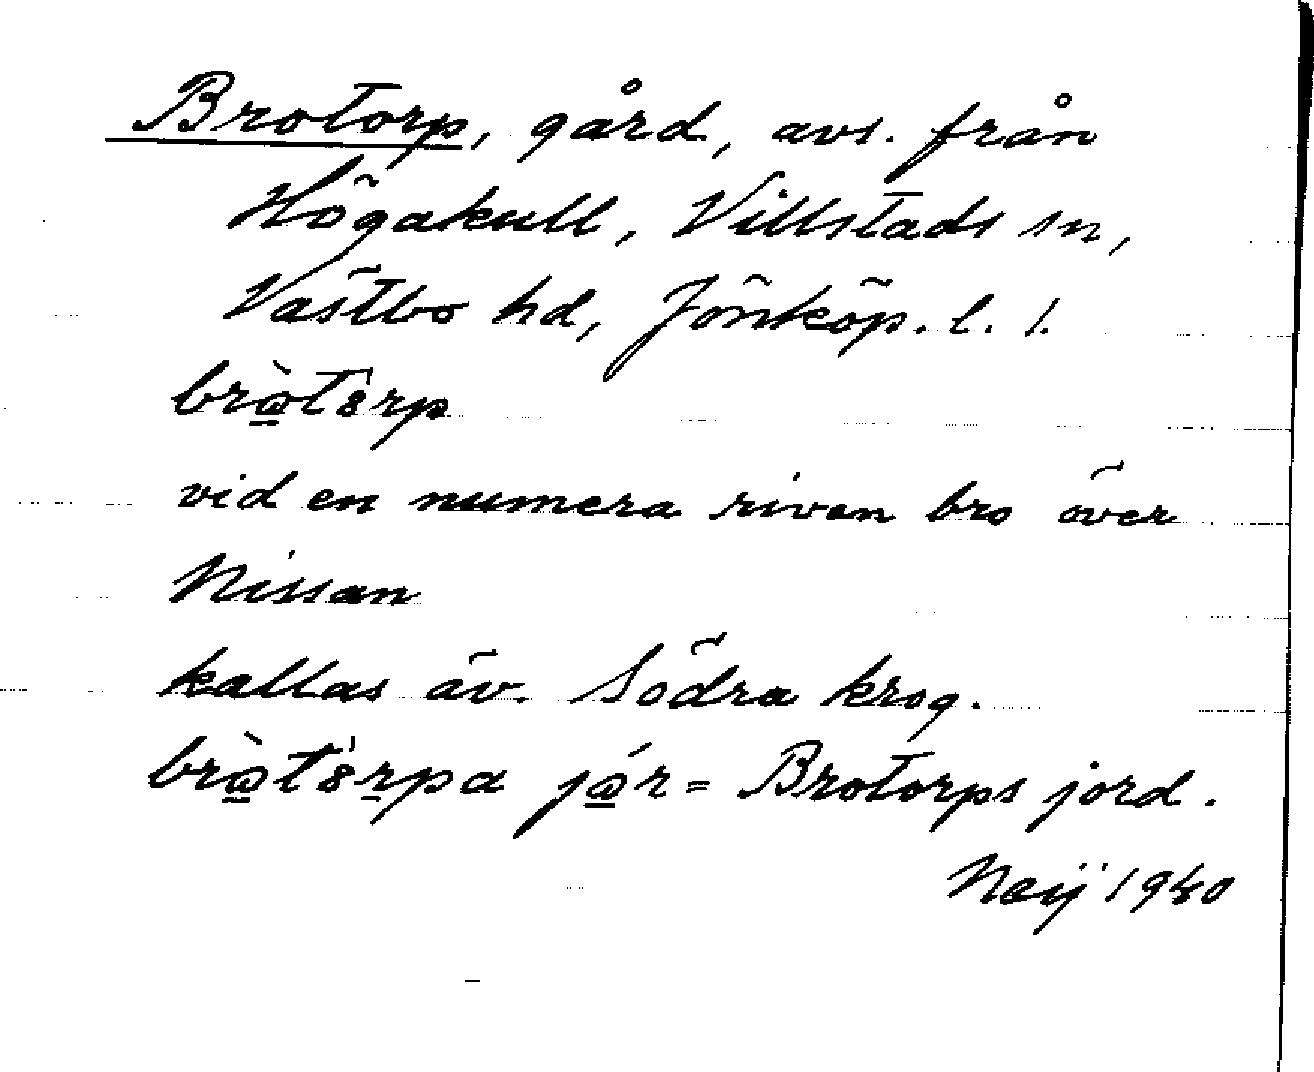 Brotorp, gård, avs. från
Högakull, Villstads sn,
Västbo hd, Jönköp. l. 1.
brὼtȣ́rp
vid en numera riven bro över
Nissan
kallas äv. Södra krog.
brὼtȣ́rpa jώr = Brotorps jord.
Neij 1940